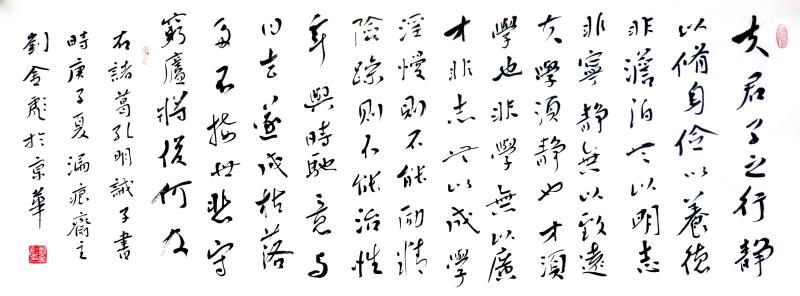 夫君子之行静
以脩身儉以養德
非澹泊无以明志
非寧静無以致遠
夫學須静也才須
學也非學無以廣
才非志无以成學
淫慢則不能勵精
險躁則不能治性
年與時馳意与
日去遂成枯落
多不接世悲守
窮廬將復何及
右諸葛孔明誡子書
時庚子夏漏痕齋主
劉彪於京華